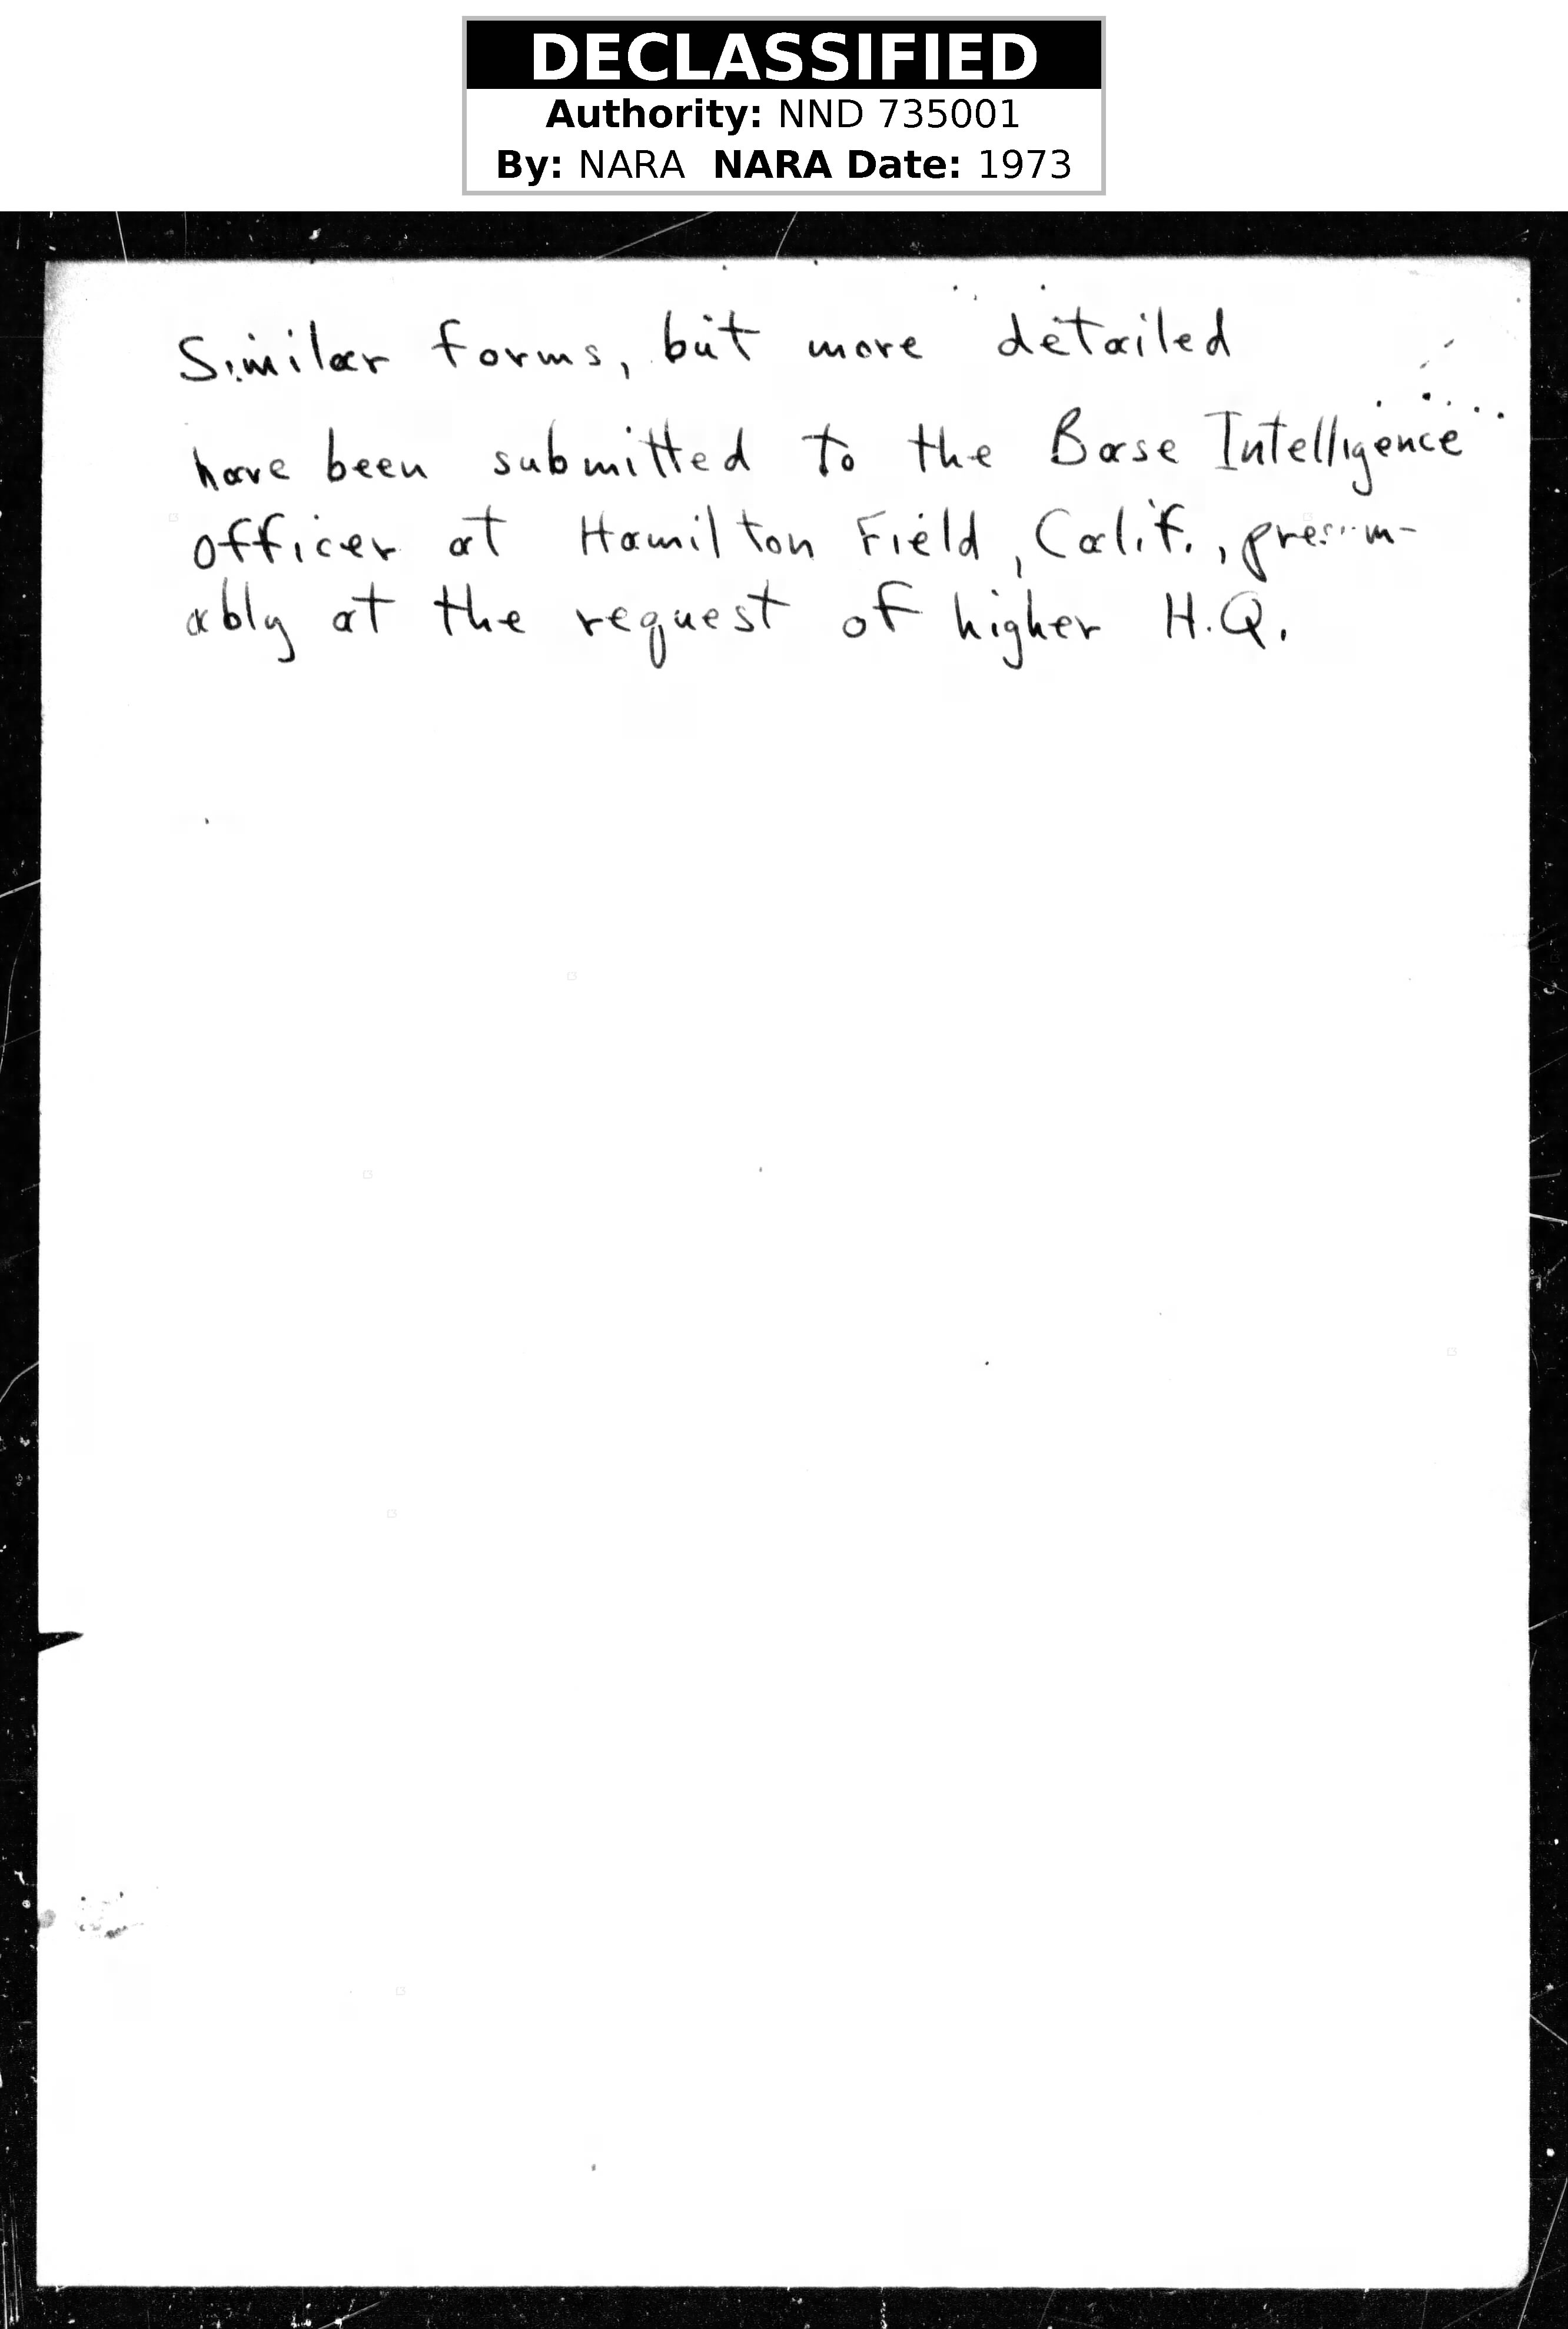 DECLASSIFIED
Authority: NND 735001
By: NARA NARA Date: 1973
Similar forms, but more detailed
have been submitted to the Base Intelligence
officer at Hamilton Field, Calif., presum-
ably at the request of higher H.Q.